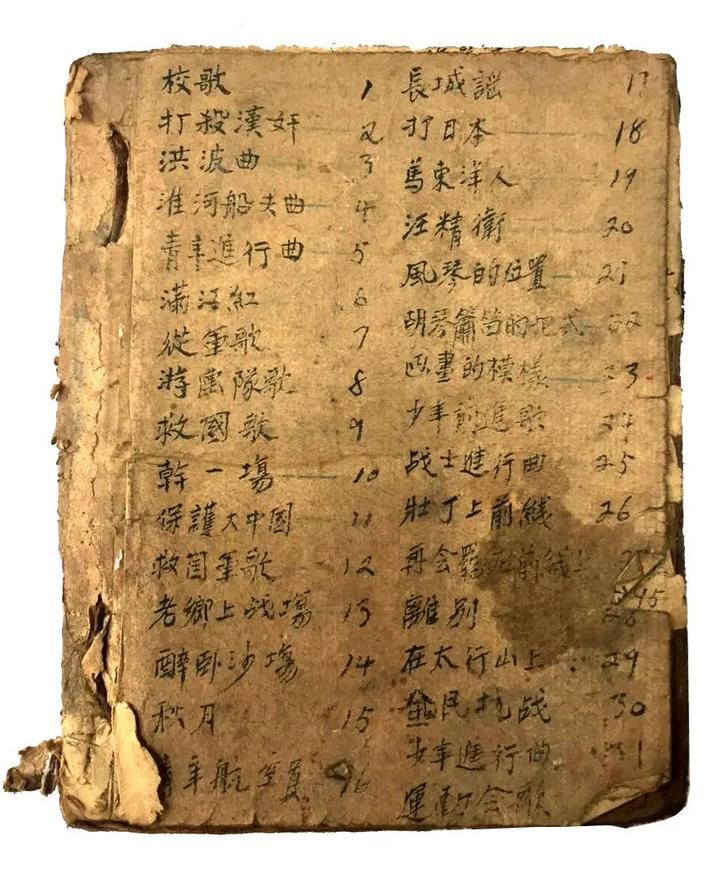 校歌 1
打殺漢奸 2
洪波曲 3
淮河船夫曲 4
青年進行曲 5
滿江紅 6
從軍歌 7
游擊隊歌 8
救國歌 9
幹一場 10
保護大中國 11
救国軍歌 12
老鄉上战場 13
醉卧沙場 14
秋月 15
年航空員 16
長城謠 17
打日本 18
罵東洋人 19
汪精衛 20
風琴的位置 21
胡琴簫笛的 式 22
畫的模樣 23
少年前進歌 24
战士進行曲 25
壯丁上前綫 26
再会 在前綫上
離別 28
在太行山上 29
全民抗战 30
女年進行曲 31
運動会歌